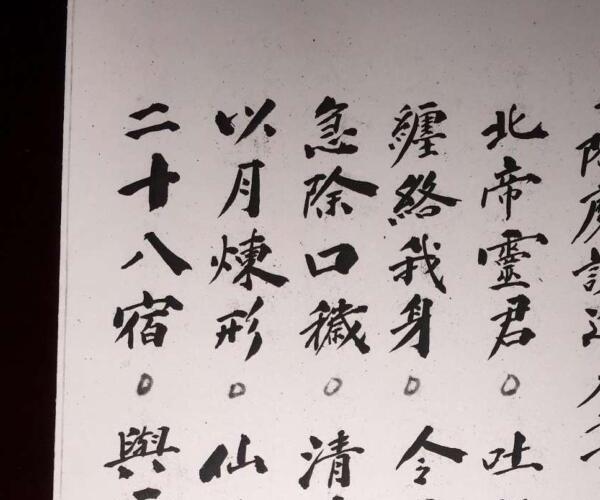 北帝靈君○吐
纏絡我身○令
急除口穢○清
以月煉形○仙
二十八宿○與